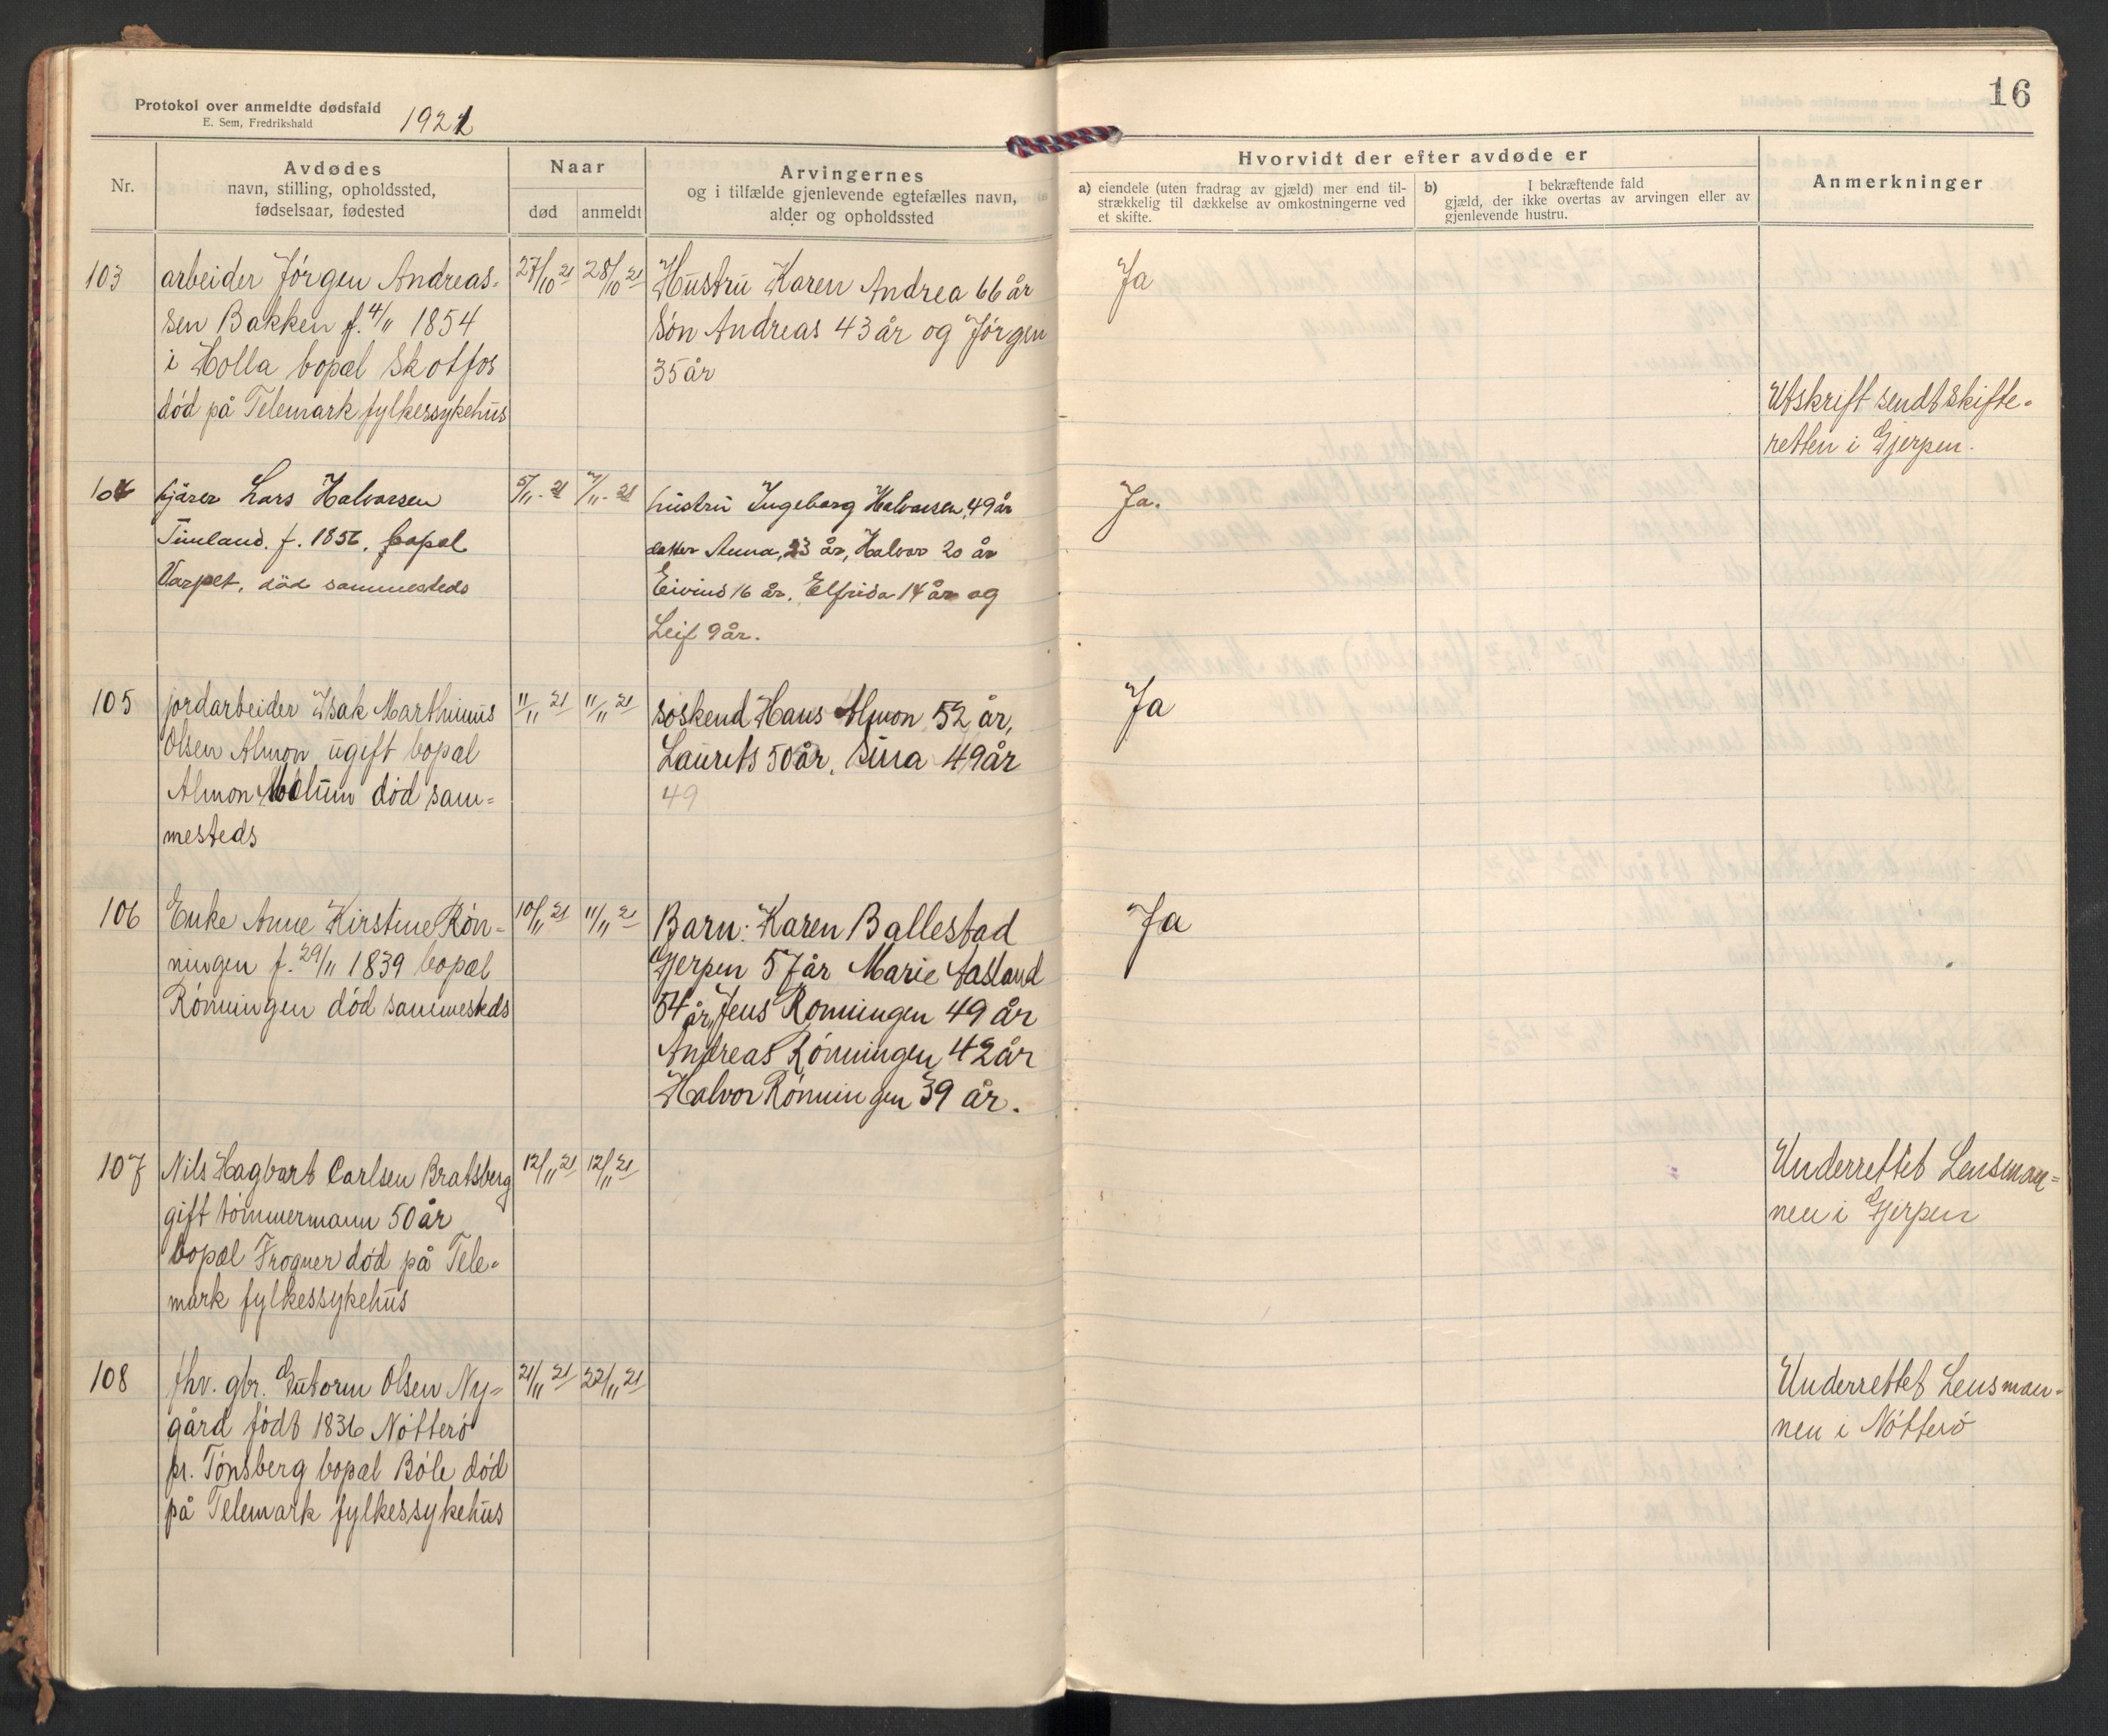 Protokol over anmeldte dødsfald
E. Sem, Fredrikshald
1921
16
Nr.
Avdødes
navn, stilling, opholdssted,
fødselsaar, fødested
Naar
død
anmeldt
Arvingernes
og i tilfælde gjenlevende egtefælles navn,
alder og opholdssted
Hvorvidt der efter avdøde er
a) eiendele (uten fradrag av gjæld) mer end til-
strækkelig til dækkelse av omkostningerne ved
et skifte.
b) I bekræftende fald
gjæld, der ikke overtas av arvingen eller av
gjenlevende hustru.
Anmerkninger
103
arbeider Jörgen Andreas-
sen Bakken f. 4/11 1854
i Holla bopæl Skotfos
död på Telemark fylkessykehus
27/10 21
28/10 21
Hustru Karen Andrea 66 år
Sön Andreas 43 år og Jörgen
35 år
Ja
Utskrift sendt skifte-
retten i Gjerpen.
104
kjörer Lars Halvorsen
f. 1856, bopæl
död sammesteds
5/11-21
7/11-21
hustru Ingeborg Halvorsen, 49 år
datter Anna, 23 år, Halvor 20 år
Eivind 16 år, Elfrida 14 år og
Leif 9 år.
Ja.
105
jordarbeider Isak Marthinius
Olsen Almon ugift bopæl
Almon Solum död sam-
mesteds
11/11 21
11/11 21
söskend Hans Almon 52 år,
Laurits 50 år, Sina 49 år
49
Ja
106
Enke Anne Kirstine Rön-
ningen f. 29/11 1839 bopæl
Rönningen död sammesteds
10/11 21
11/11 21
Barn: Karen Ballestad
Gjerpen 57 år Marie Aasland
54 år, Jens Rönningen 49 år
Andreas Rönningen 42 år
Halvor Rönningen 39 år.
Ja
107
Nils Hagbart Carlsen Bratsberg
gift tömmermann 50 år
bopæl Frogner död på Tele-
mark fylkessykehus
12/11 21
12/11 21
Underrettet Lensman-
nen i Gjerpen
108
fhv. gbr. Gutorm Olsen Ny-
gård födt 1836 Nötterö
pr. Tönsberg bopæl Böle död
på Telemark fylkessykehus
21/11 21
22/11 21
Underrettet Lensman-
nen i Nötterö